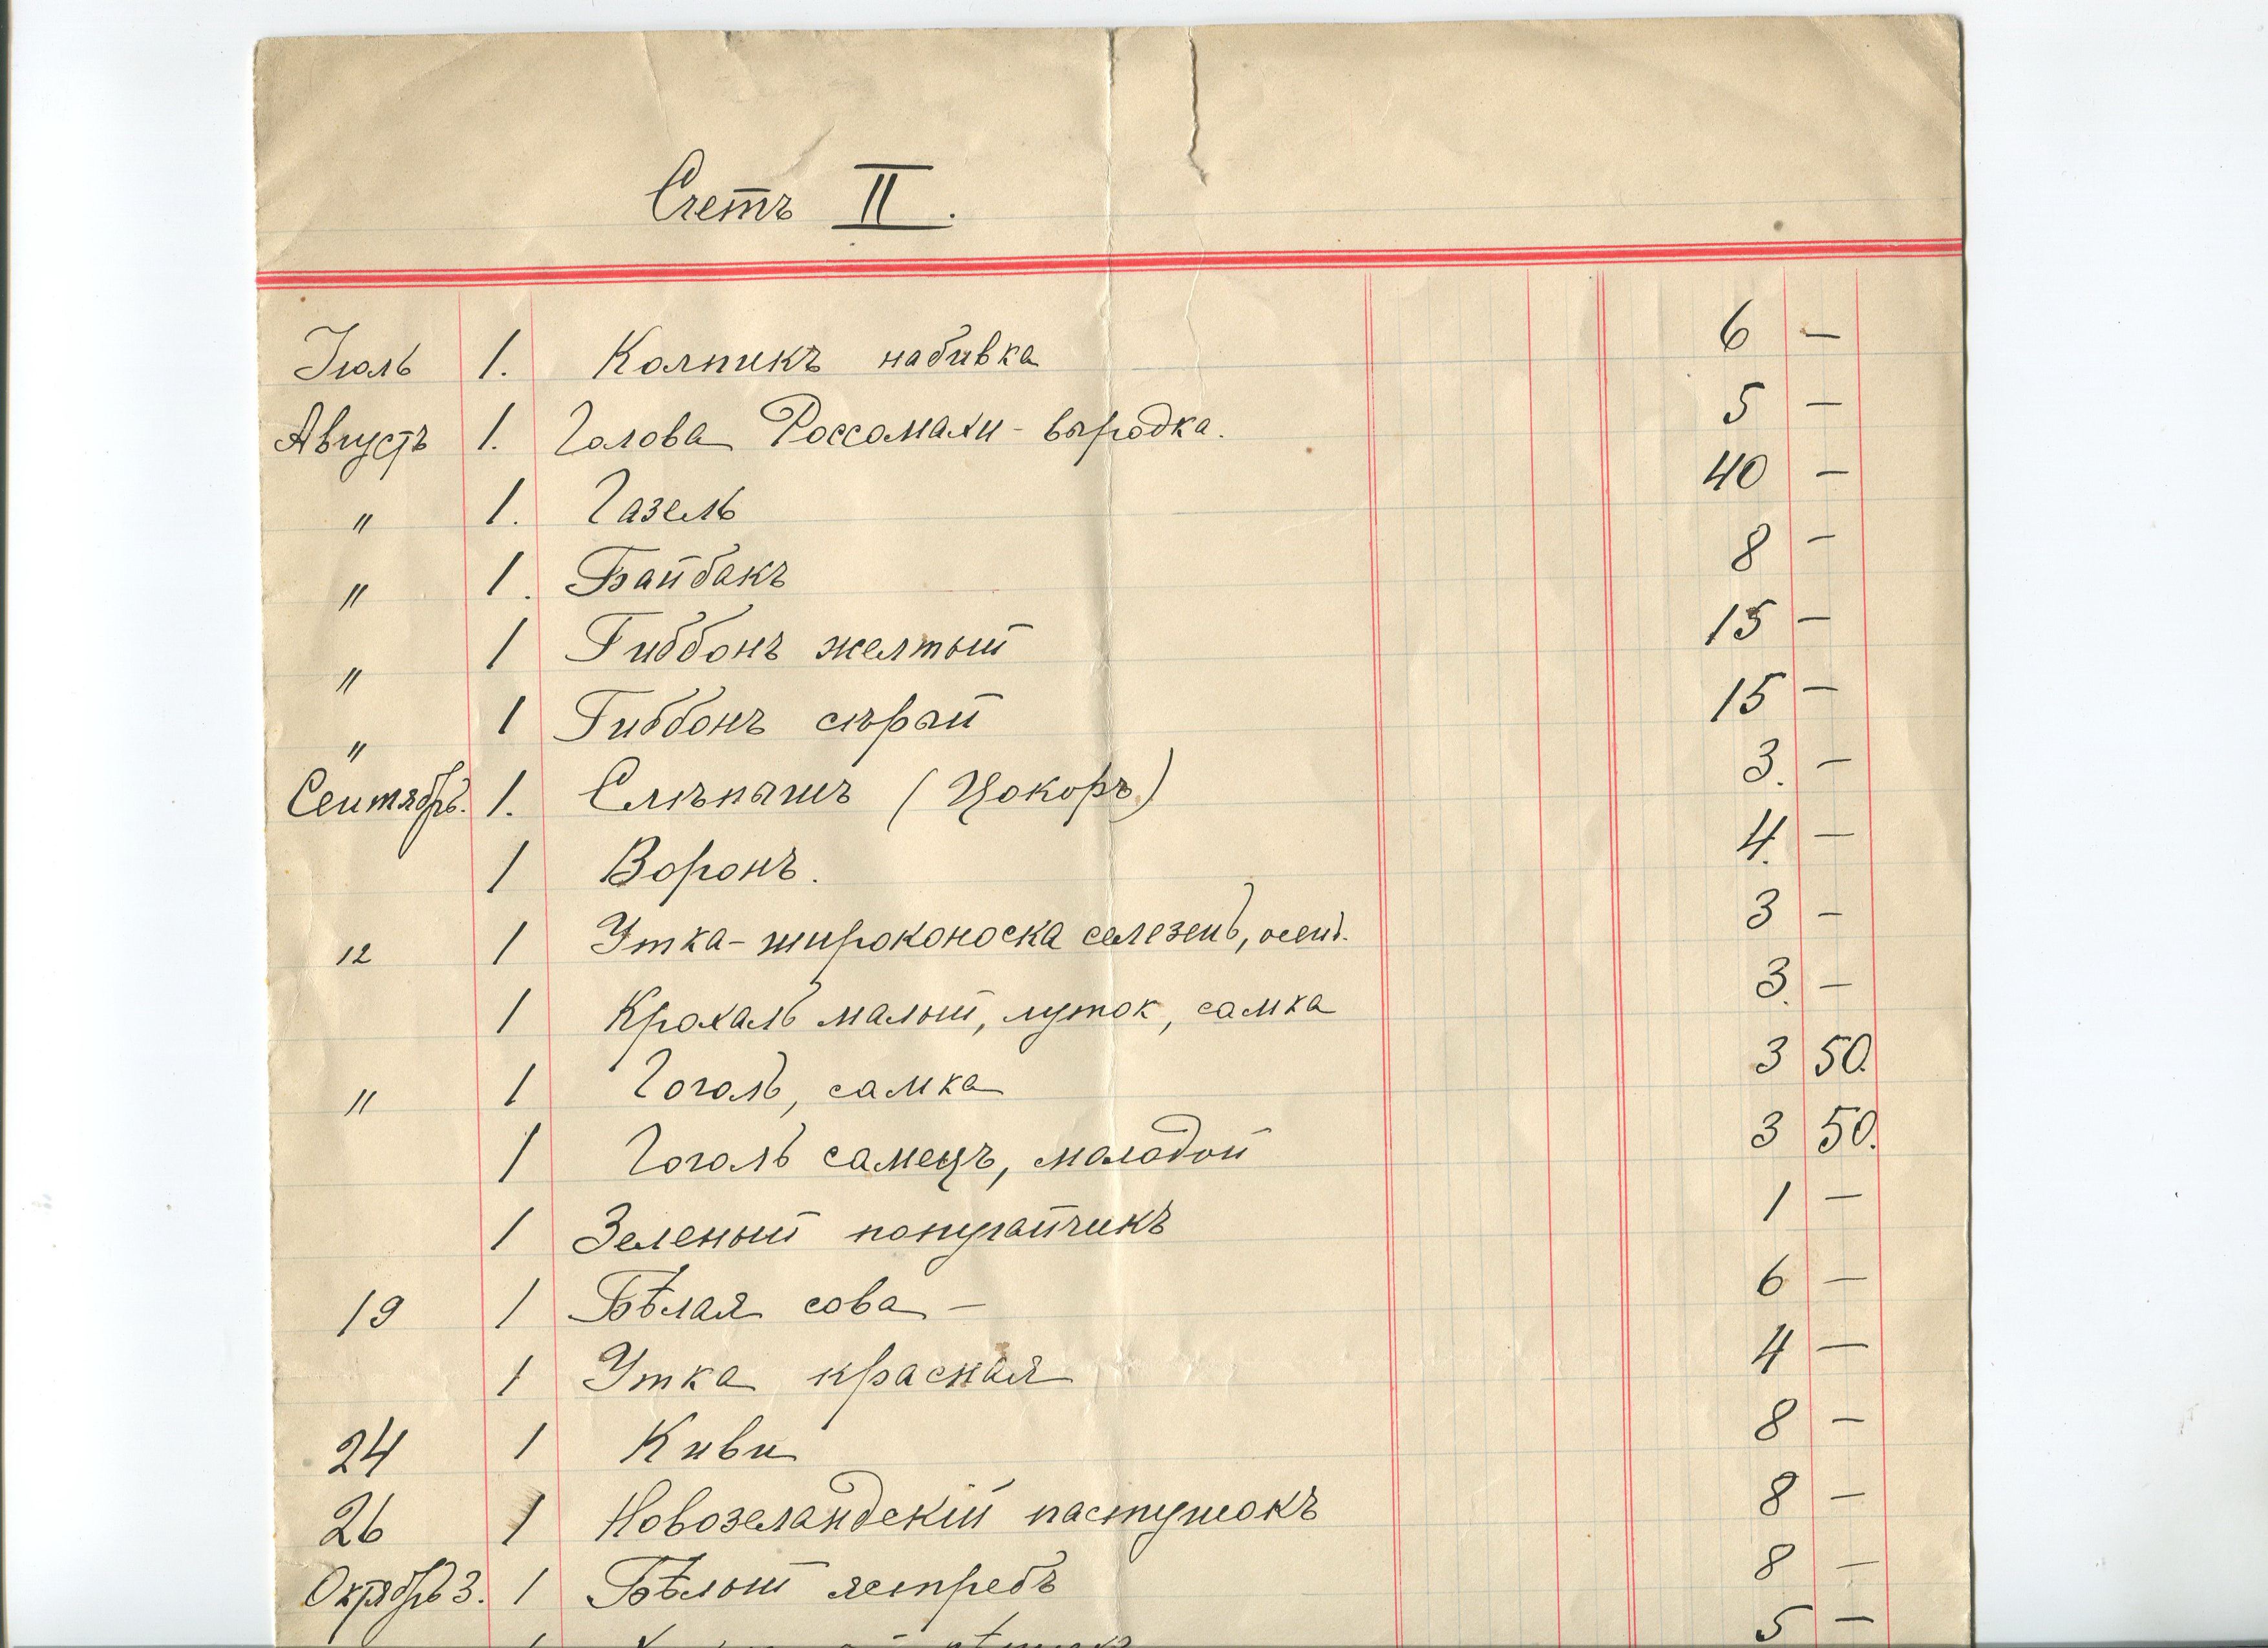 Счетъ II.
Іюль 1. Колпикъ набивка 6 —
Августъ 1. Голова Россомахи - выродка. 5 —
" 1. Газель 40 —
" 1. Байбакъ 8 —
" 1 Гиббонъ желтый 15 —
" 1 Гиббонъ сѣрый 15 —
Сентябрь. 1. Слѣпышъ (Цокоръ) 3. —
1 Воронъ. 4. —
12 1 Утка-широконоска селезень, осень. 3 —
1 Крохаль малый, луток, самка 3. —
" 1 Гоголь, самка 3 50.
1 Гоголь самецъ, молодой 3 50.
1 Зеленый попугайчикъ 1 —
19 1 Бѣлая сова — 6 —
1 Утка красная 4 —
24 1 Киви 8 —
26 1 Новозеландскій пастушокъ 8 —
Октябрь 3. 1 Бѣлый ястребъ 8 —
5 —